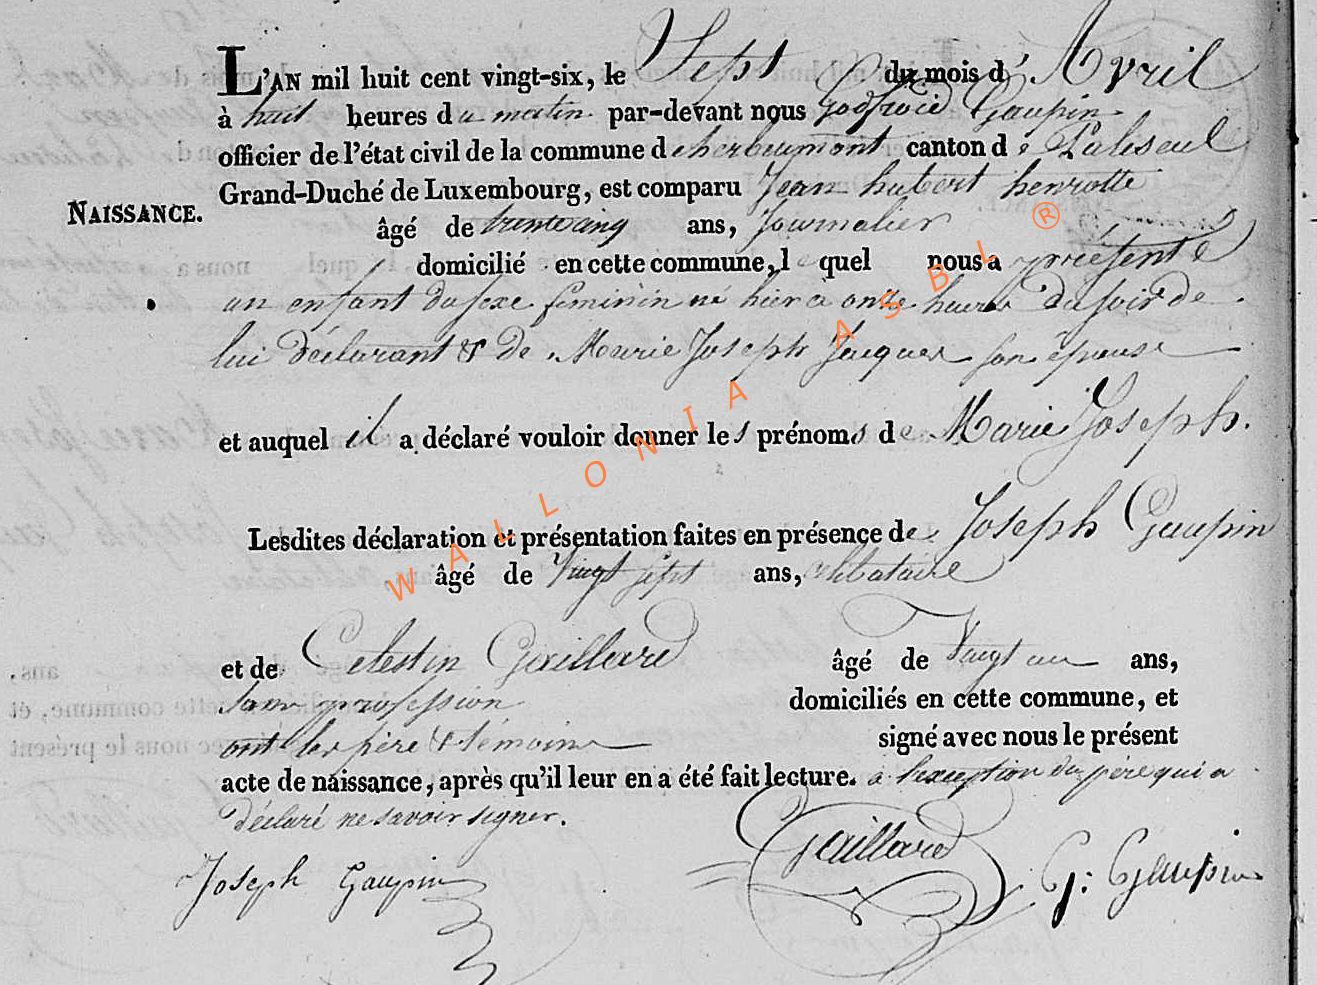 L'AN mil huit cent vingt-six, le Sept du mois d' Avril
à huit heures du matin par-devant nous Godfroid Gaupin
officier de l'état civil de la commune d'herbeumont canton de Paliseul
Grand-Duché de Luxembourg, est comparu Jean hubert henrotte
NAISSANCE.
âgé de trente cinq ans, Journalier
domicilié en cette commune, lequel nous a présenté
un enfant du sexe féminin né hier à onze heures du soir de
lui déclarant & de Marie Joseph Jacques son épouse
et auquel il a déclaré vouloir donner les prénoms de Marie Joseph.
Lesdites déclaration et présentation faites en présence de Joseph Gaupin
âgé de Vingt sept ans, célibataire
et de Celestin Gaillard âgé de Vingt un ans,
sans profession domiciliés en cette commune, et
ont les père & témoins signé avec nous le présent
acte de naissance, après qu'il leur en a été fait lecture. à l'exception du père qui a
déclaré ne savoir signer.
Joseph Gaupin Gaillard G: Gaupin
WALLONIA ASBL ®